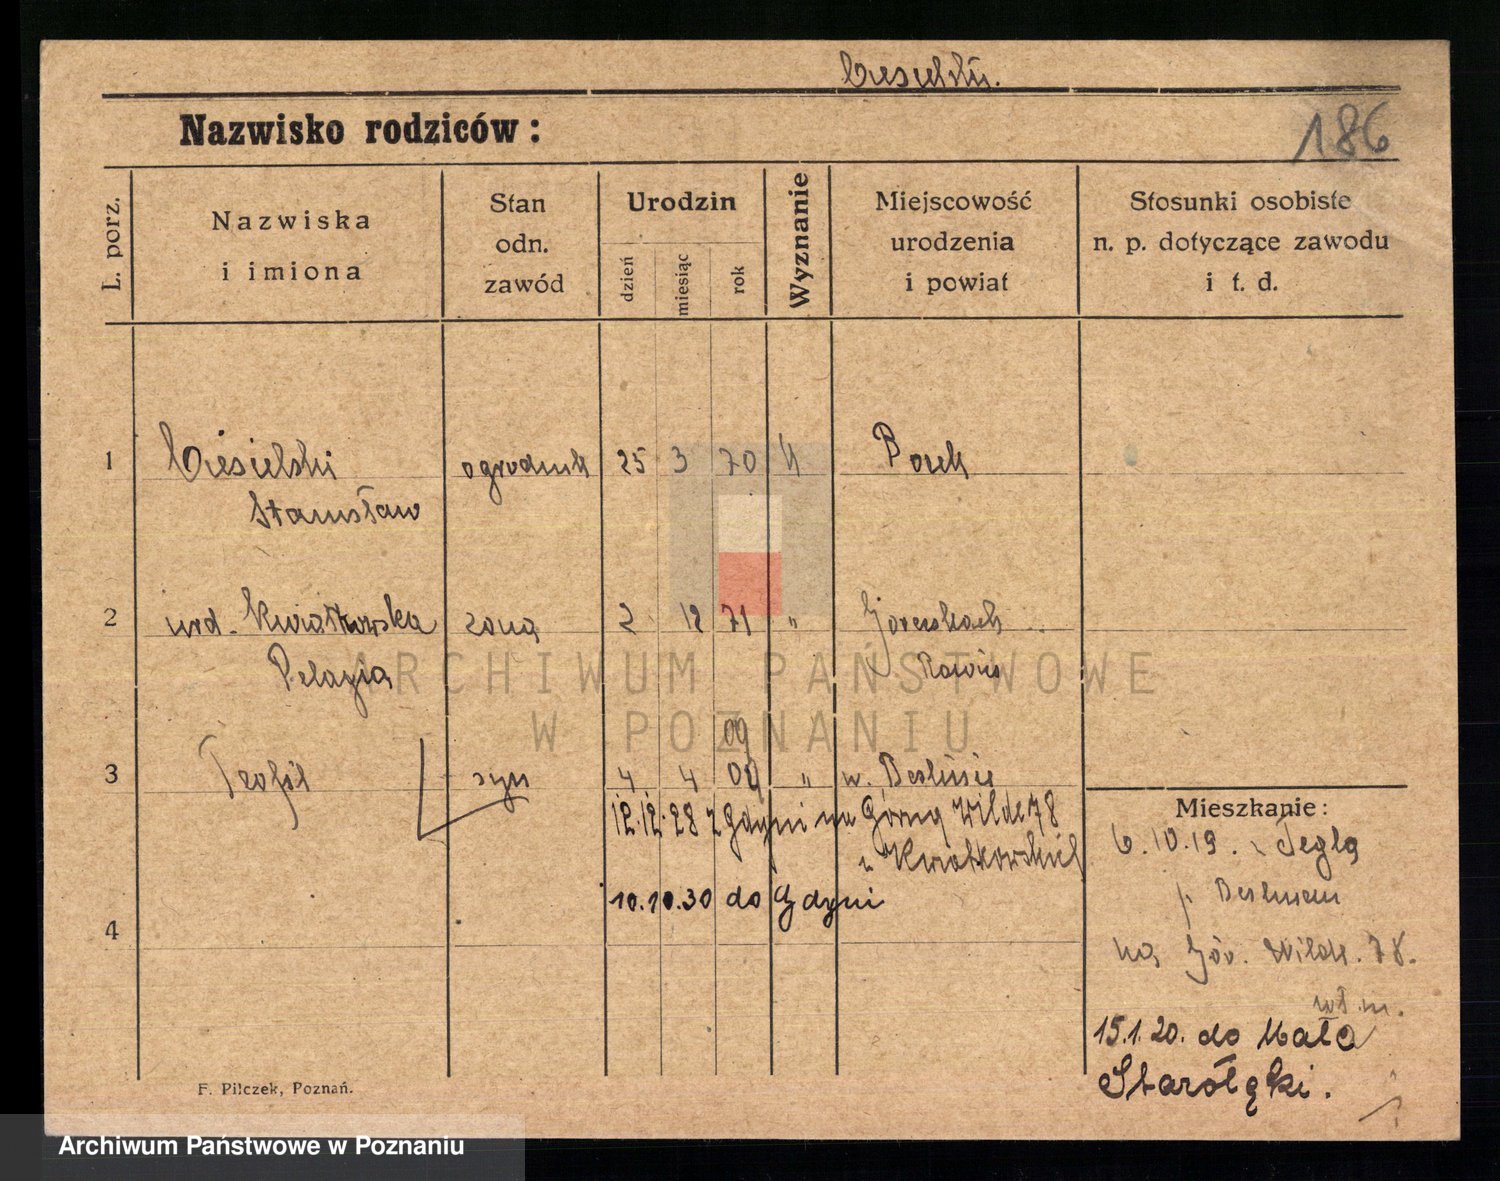 Ciesielski.
Nazwisko rodziców:
186
L. porz.
Nazwiska
i imiona
Stan
odn.
zawód
Urodzin
dzień
miesiąc
rok
Wyznanie
Miejscowość
urodzenia
i powiat
Stosunki osobiste
n. p. dotyczące zawodu
i t. d.
1 Ciesielski ogrodnik 25 3 70 k Borek
Stanisław
2 urd. Kwiatkowska żona 2 12 71 "
Pelagia
ARCHIWUM PAŃSTWOWE
W POZNANIU
09
3 Teofil syn 4 4 09 " w.
12.12.28 z Gdyni na Górną Wildę 78
u Kwiatkowskich
10.10.30 do Gdyni
4
Mieszkanie:
6.10.19. z
na Gór. Wildę. 78.
wł. m.
15.1.20. do Mała
Starołęki.
F. Pilczek, Poznań.
Archiwum Państwowe w Poznaniu